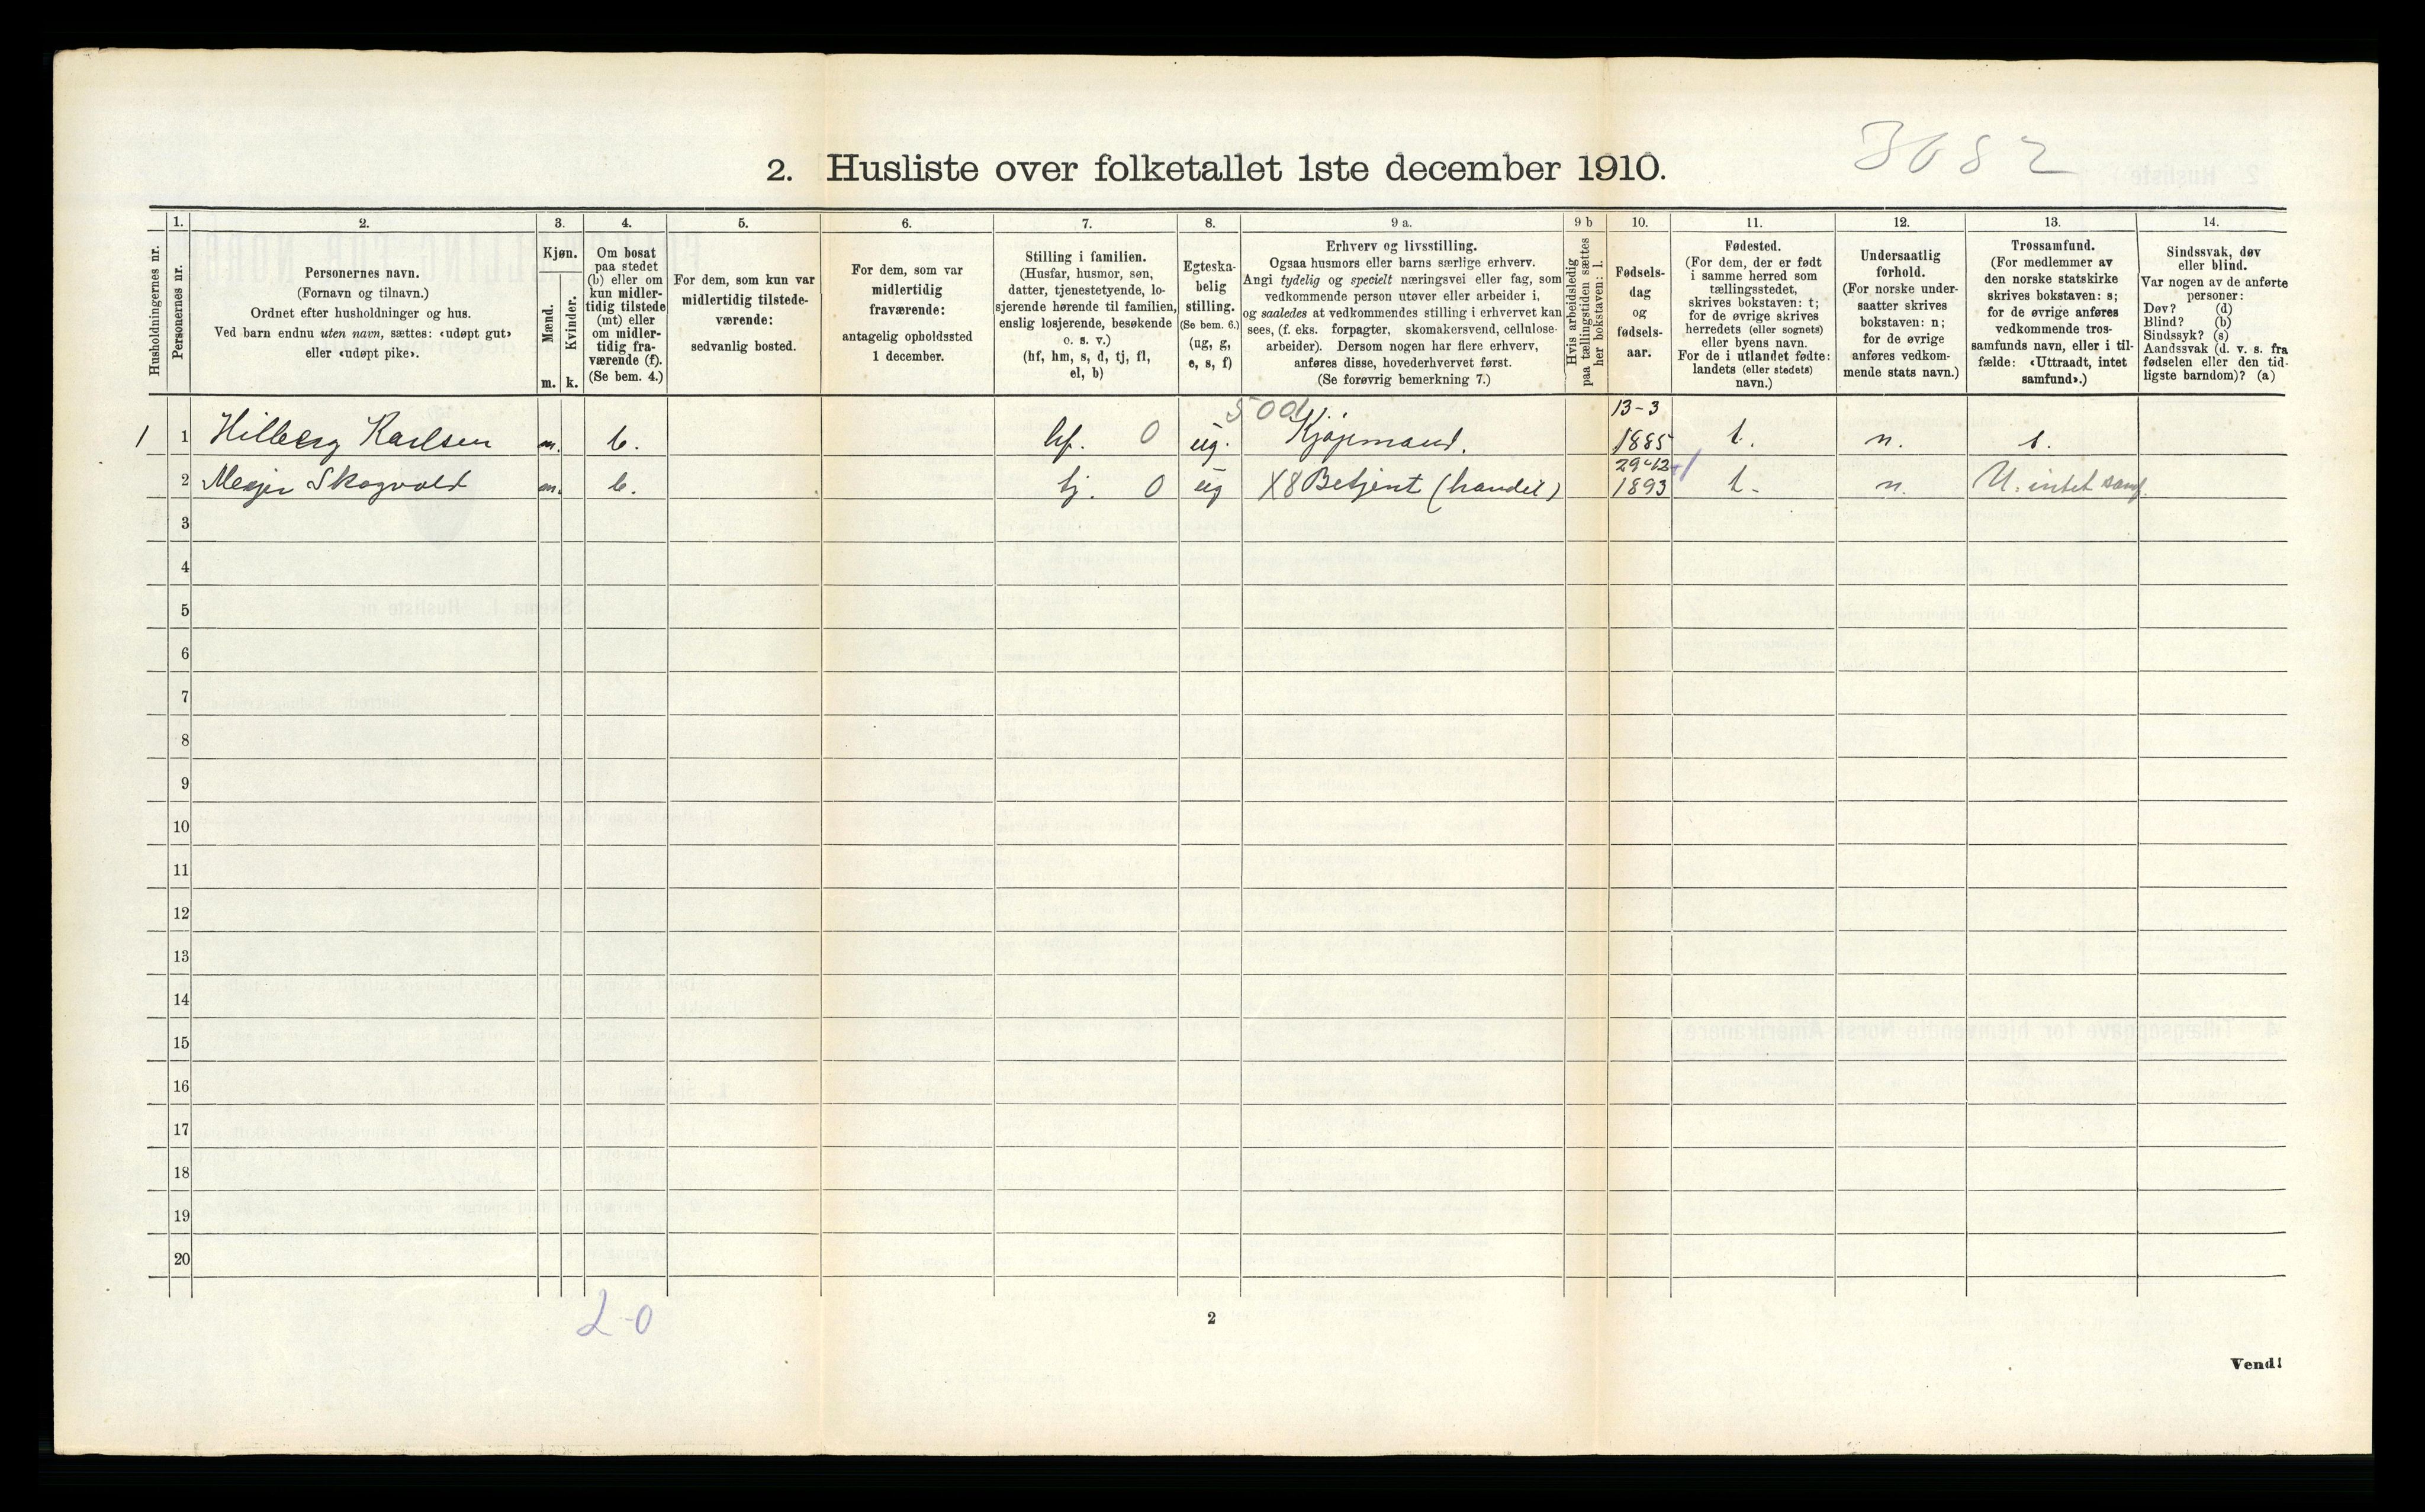 3082
2. Husliste over folketallet 1ste december 1910.
Husholdningernes nr.
1.
Personernes nr.
2.
Personernes navn.
(Fornavn og tilnavn.)
Ordnet efter husholdninger og hus.
Ved barn endnu uten navn, sættes: «udøpt gut»
eller «udøpt pike».
3.
Kjøn.
Mænd.
Kvinder.
m. k.
4.
Om bosat
paa stedet
(b) eller om
kun midler-
tidig tilstede
(mt) eller
om midler-
tidig fra-
værende (f).
(Se bem. 4.)
5.
For dem, som kun var
midlertidig tilstede-
værende:
sedvanlig bosted.
6.
For dem, som var
midlertidig
fraværende:
antagelig opholdssted
1 december.
7.
Stilling i familien.
(Husfar, husmor, søn,
datter, tjenestetyende, lo-
sjerende hørende til familien,
enslig losjerende, besøkende
o. s. v.)
(hf, hm, s, d, tj, fl,
el, b)
8.
Egteska-
belig
stilling.
(Se bem. 6.)
(ug, g,
e, s, f)
9 a.
Erhverv og livsstilling.
Ogsaa husmors eller barns særlige erhverv.
Angi tydelig og specielt næringsvei eller fag, som
vedkommende person utøver eller arbeider i,
og saaledes at vedkommendes stilling i erhvervet kan
sees, (f. eks. forpagter, skomakersvend, cellulose-
arbeider). Dersom nogen har flere erhverv,
anføres disse, hovederhvervet først.
(Se forøvrig bemerkning 7.)
9 b
Hvis arbeidsledig
paa tællingstiden sættes
her bokstaven: l.
10.
Fødsels-
dag
og
fødsels-
aar.
11.
Fødested.
(For dem, der er født
i samme herred som
tællingsstedet,
skrives bokstaven: t;
for de øvrige skrives
herredets (eller sognets)
eller byens navn.
For de i utlandet fødte:
landets (eller stedets)
navn.)
12.
Undersaatlig
forhold.
(For norske under-
saatter skrives
bokstaven: n;
for de øvrige
anføres vedkom-
mende stats navn.)
13.
Trossamfund.
(For medlemmer av
den norske statskirke
skrives bokstaven: s;
for de øvrige anføres
vedkommende tros-
samfunds navn, eller i til-
fælde: «Uttraadt, intet
samfund».)
14.
Sindssvak, døv
eller blind.
Var nogen av de anførte
personer:
Døv? (d)
Blind? (b)
Sindssyk? (s)
Aandssvak (d. v. s. fra
fødselen eller den tid-
ligste barndom)? (a)
500 13-3
1 1 Hilberg Karlsen m. b. hf. 0 ug. Kjøpmand. 1885 t. n. s.
2 Meyer Skogvold m. b. tj. 0 ug X8 Betjent (handel) 29-12 1893 t. n. U. intet samf.
3
4
5
6
7
8
9
10
11
12
13
14
15
16
17
18
19
20
2-0
2
Vend!